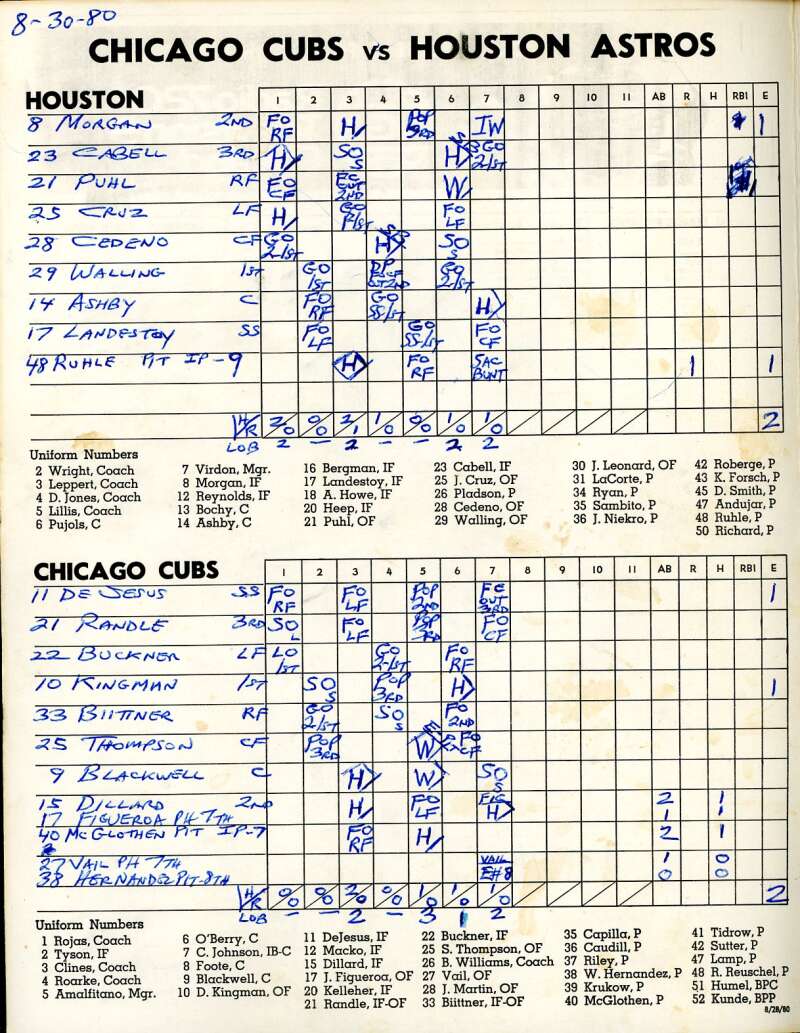 8-30-80
CHICAGO CUBS vs HOUSTON ASTROS
HOUSTON 1 2 3 4 5 6 7 8 9 10 11 AB R H RBI E
8 MORGAN 2ND FO RF H POP 3RD IW 1
23 CABELL 3RD H SO S H S 3GO 2/1ST
21 PUHL RF FO CF FC OUT 2ND W
25 CRUZ LF H GO P/1ST FO LF
28 CEDENO CF GO 2-1ST H SO S
29 WALLING 1ST GO 1ST DP GO 2/1ST
14 ASHBY C FO RF GO SS/1ST H
17 LANDESTOY SS FO LF GO SS-1ST FO CF
48 RUHLE PIT IP-9 H FO RF SAC BUNT 1 1
H/R 2/0 0/0 2/1 1/0 0/0 1/0 1/0 2
LOB 2 – 2 – – 2 2
Uniform Numbers
2 Wright, Coach
3 Leppert, Coach
4 D. Jones, Coach
5 Lillis, Coach
6 Pujols, C
7 Virdon, Mgr.
8 Morgan, IF
12 Reynolds, IF
13 Bochy, C
14 Ashby, C
16 Bergman, IF
17 Landestoy, IF
18 A. Howe, IF
20 Heep, IF
21 Puhl, OF
23 Cabell, IF
25 J. Cruz, OF
26 Pladson, P
28 Cedeno, OF
29 Walling, OF
30 J. Leonard, OF
31 LaCorte, P
34 Ryan, P
35 Sambito, P
36 J. Niekro, P
42 Roberge, P
43 K. Forsch, P
45 D. Smith, P
47 Andujar, P
48 Ruhle, P
50 Richard, P
CHICAGO CUBS 1 2 3 4 5 6 7 8 9 10 11 AB R H RBI E
11 DE JESUS SS FO RF FO LF POP 2ND FC OUT 3RD 1
21 RANDLE 3RD SO L FO LF POP 3RD FO CF
22 BUCKNER LF LO 1ST GO 2-1ST FO RF
10 KINGMAN 1ST SO S POP 3RD H 1
33 BIITTNER RF GO 2/1ST SO S FO 2ND
25 THOMPSON CF POP 3RD W E FO CF
9 BLACKWELL C H W SO S
15 DILLARD 2ND H FO LF FIG H 2 1
17 FIGUEROA PH 7TH 1 1
40 McGLOTHEN PIT IP-7 FO RF H 2 1
27 VAIL PH 7TH VAIL 1 0
38 HERNANDEZ PIT-8TH 0 0
H/R 0/0 0/0 2/0 0/0 1/0 1/0 1/0 2
LOB – – 2 – 3 1 2
Uniform Numbers
1 Rojas, Coach
2 Tyson, IF
3 Clines, Coach
4 Roarke, Coach
5 Amalfitano, Mgr.
6 O'Berry, C
7 C. Johnson, IB-C
8 Foote, C
9 Blackwell, C
10 D. Kingman, OF
11 DeJesus, IF
12 Macko, IF
15 Dillard, IF
17 J. Figueroa, OF
20 Kelleher, IF
21 Randle, IF-OF
22 Buckner, IF
25 S. Thompson, OF
26 B. Williams, Coach
27 Vail, OF
28 J. Martin, OF
33 Biittner, IF-OF
35 Capilla, P
36 Caudill, P
37 Riley, P
38 W. Hernandez, P
39 Krukow, P
40 McGlothen, P
41 Tidrow, P
42 Sutter, P
47 Lamp, P
48 R. Reuschel, P
51 Humel, BPC
52 Kunde, BPP
8/28/80